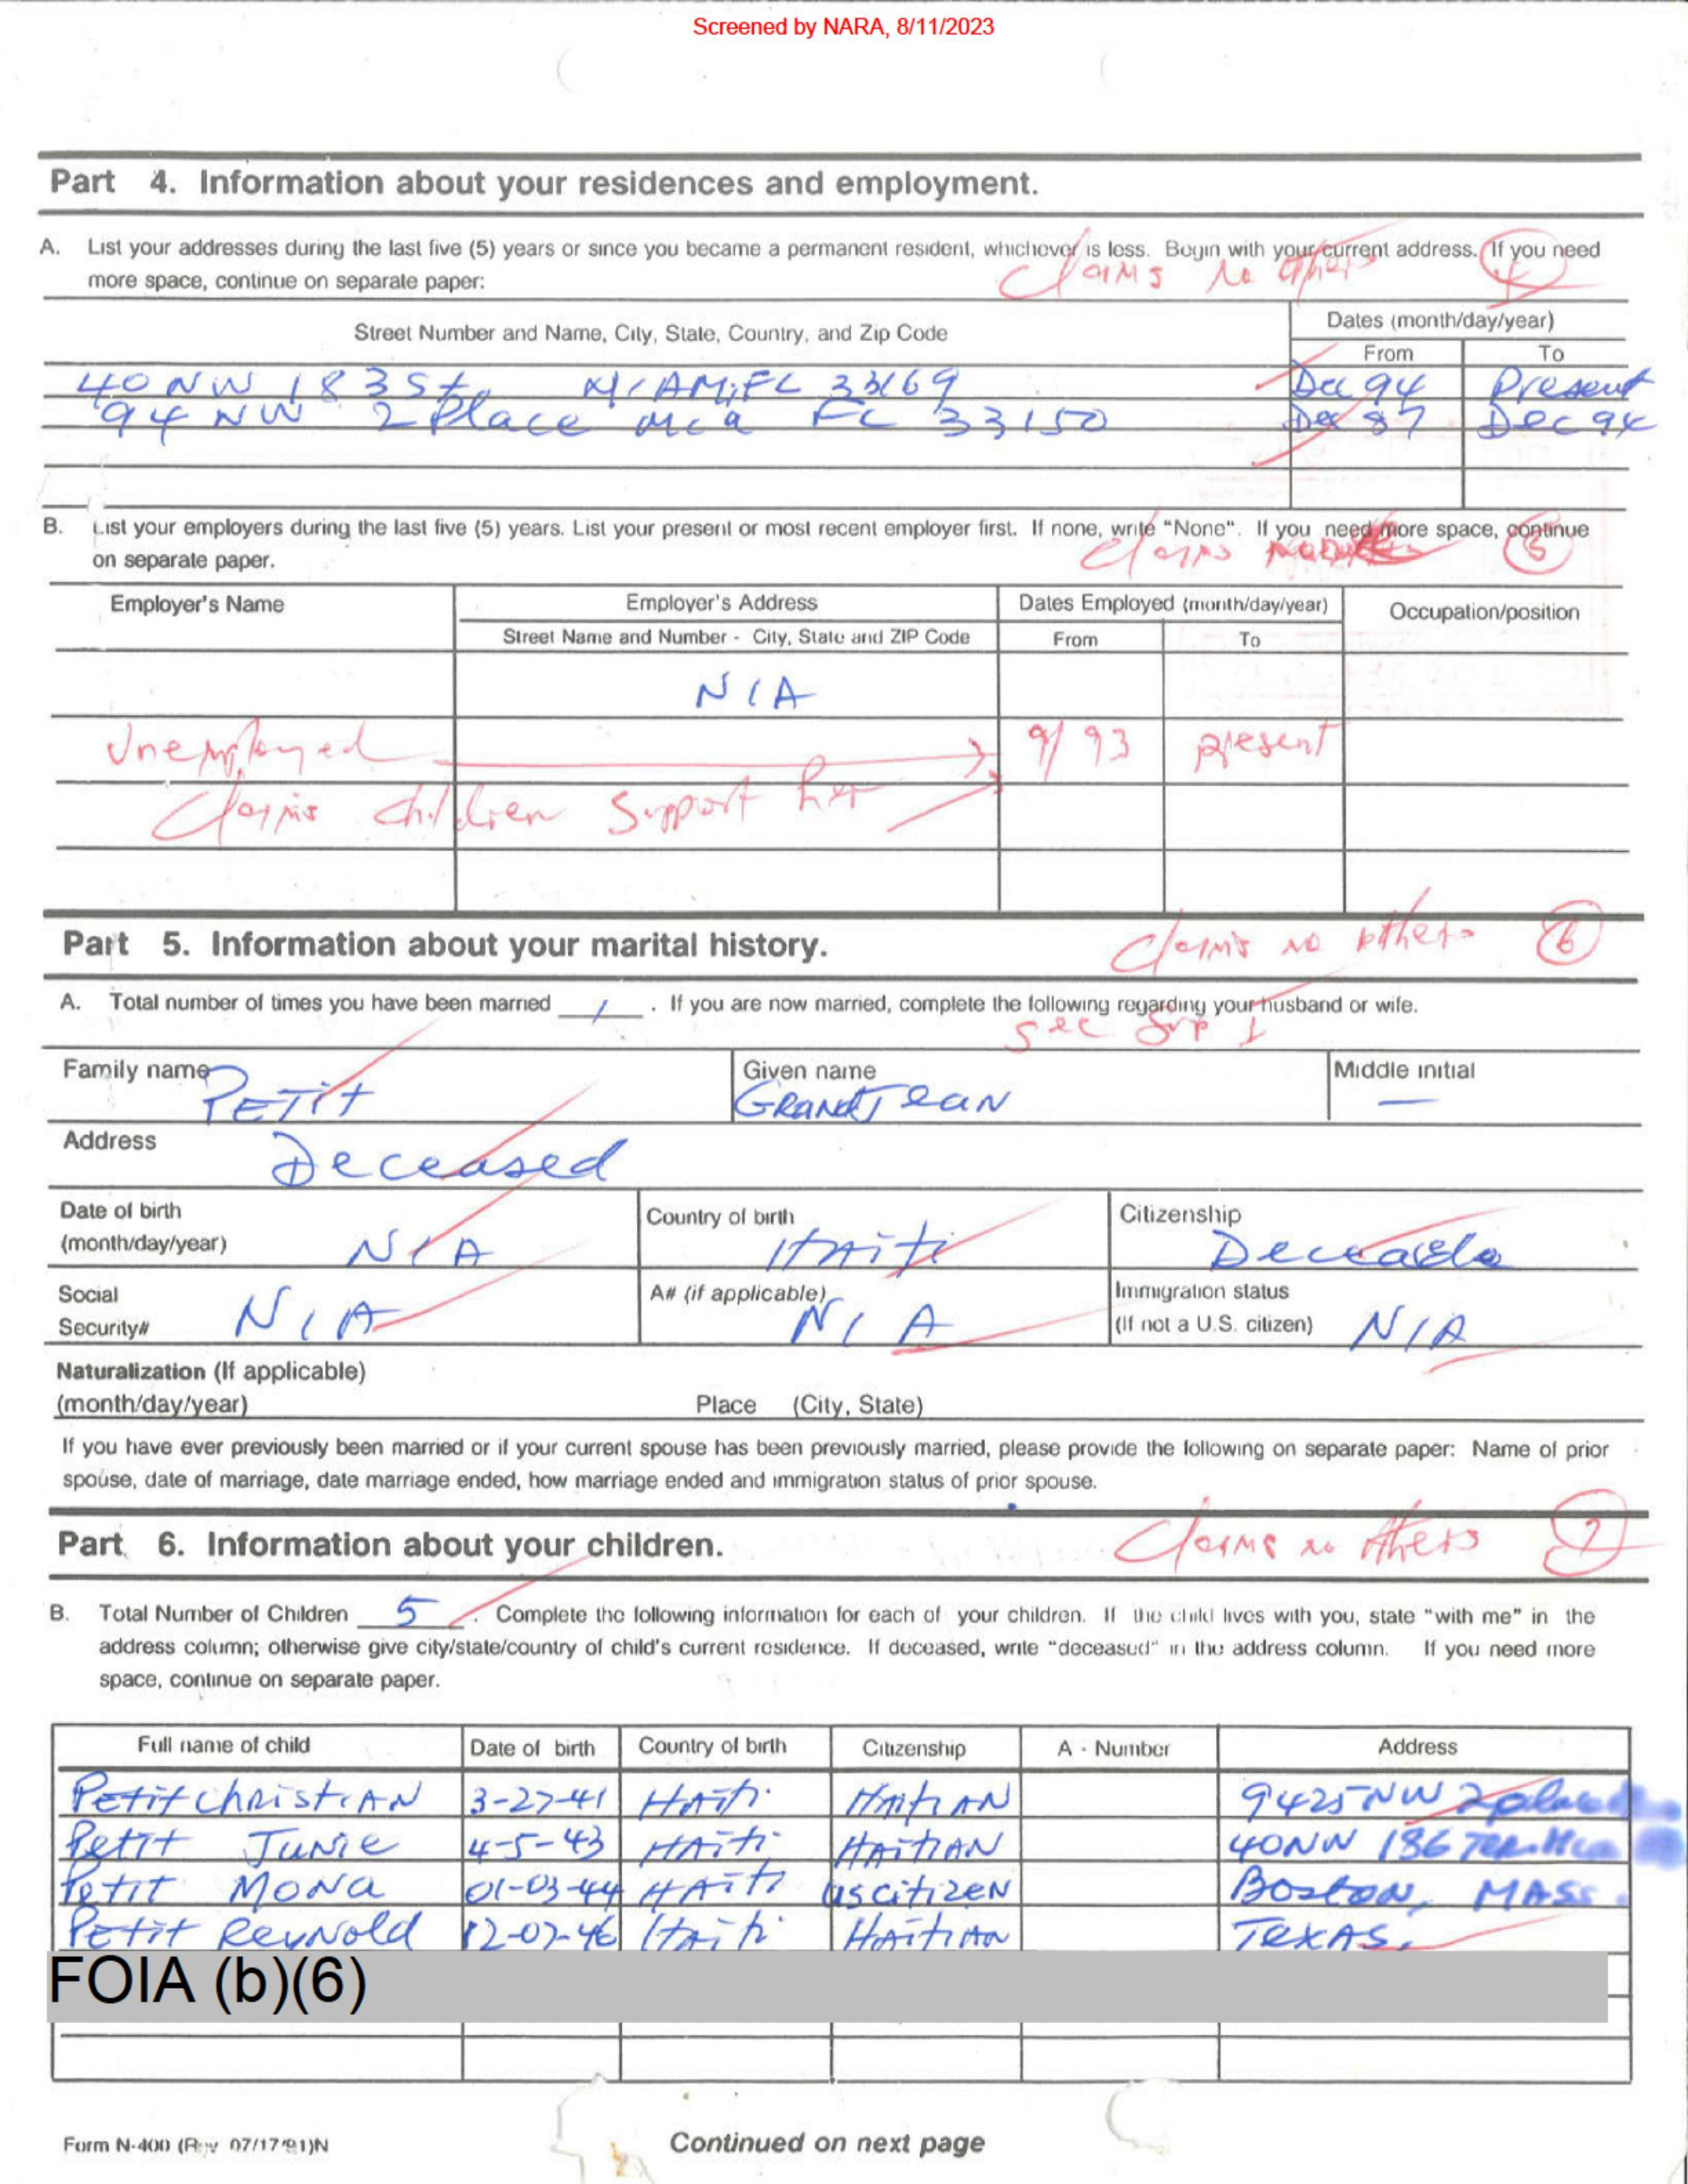 Screened by NARA, 8/11/2023
Part 4. Information about your residences and employment.
A. List your addresses during the last five (5) years or since you became a permanent resident, whichever is less. Begin with your current address. If you need
more space, continue on separate paper:
Claims no others 4
Street Number and Name, City, State, Country, and Zip Code
Dates (month/day/year)
From To
40 NW 183 St. MIAMI FL 33169 Dec 94 Present
94 NW 2 Place FL 33150 Dec 87 Dec 94
B. List your employers during the last five (5) years. List your present or most recent employer first. If none, write "None". If you need more space, continue
on separate paper.
Claims 5
Employer's Name Employer's Address Dates Employed (month/day/year) Occupation/position
Street Name and Number - City, State and ZIP Code From To
N/A
Unemployed 9/93 present
Claims children support her
Part 5. Information about your marital history.
Claims no others 6
A. Total number of times you have been married 1 . If you are now married, complete the following regarding your husband or wife.
See Sup 1
Family name Given name Middle initial
PETIT GRANDJEAN —
Address
Deceased
Date of birth Country of birth Citizenship
(month/day/year) N/A HAITI
Social A# (if applicable) Immigration status
Security# N/A N/A (If not a U.S. citizen) N/A
Naturalization (If applicable)
(month/day/year) Place (City, State)
If you have ever previously been married or if your current spouse has been previously married, please provide the following on separate paper: Name of prior
spouse, date of marriage, date marriage ended, how marriage ended and immigration status of prior spouse.
Part 6. Information about your children.
Claims no others 7
B. Total Number of Children 5 . Complete the following information for each of your children. If the child lives with you, state "with me" in the
address column; otherwise give city/state/country of child's current residence. If deceased, write "deceased" in the address column. If you need more
space, continue on separate paper.
Full name of child Date of birth Country of birth Citizenship A - Number Address
Petit ChristiAN 3-27-41 HAiti HAitiAN 9425 NW 2 place
Petit Junie 4-5-43 HAiti HAitiAN 40NW 186 Ter.
Petit Mona 01-03-44 HAiti US citizen Boston, MASS.
Petit Reynold 12-07-46 HAiti HAitiAN TEXAS.
FOIA (b)(6)
Form N-400 (Rev 07/17/91)N
Continued on next page